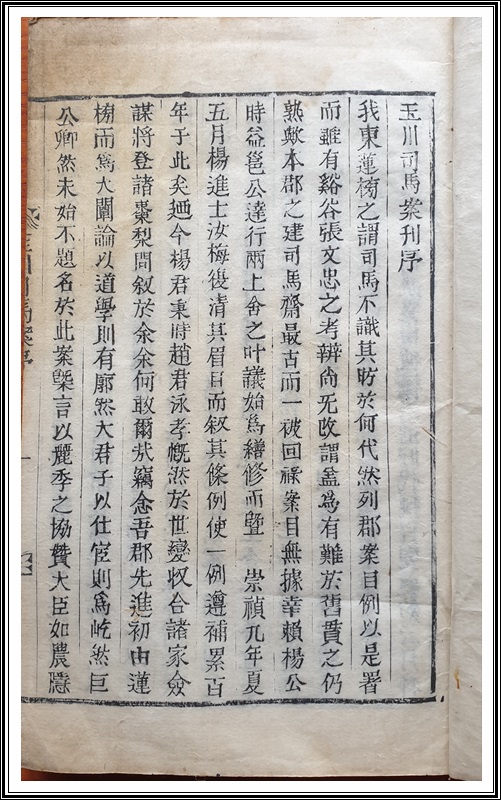 玉川司馬案刊序
我東蓮榜之謂司馬不識其昉於何代然列郡案目例以是署
而雖有谿谷張文忠之考辨尙无改謂盖爲有難於舊貫之仍
熟歟本郡之建司馬齋最古而一被回祿案目無據幸賴楊公
時益邕公達行兩上舍之叶議始爲繕修而曁 崇禎九年夏
五月楊進士汝梅復淸其眉目而叙其條例使一例遵補累百
年于此矣迺今楊君秉時趙君泳孝慨然於世變収合諸家僉
謀將登諸棗梨問叙於余余何敢爾哉竊念吾郡先進初由蓮
榜而爲大闡論以道學則有廓然大君子以仕宦則爲屹然巨
公卿然未始不題名於此案槩言以麗季之協賛大臣如農隱
玉川司馬案序
一